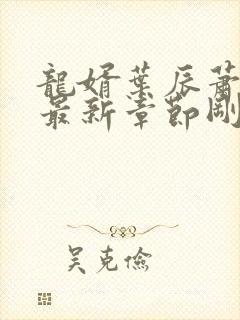 龍婿葉辰蕭
最新章節剛
吴克儉